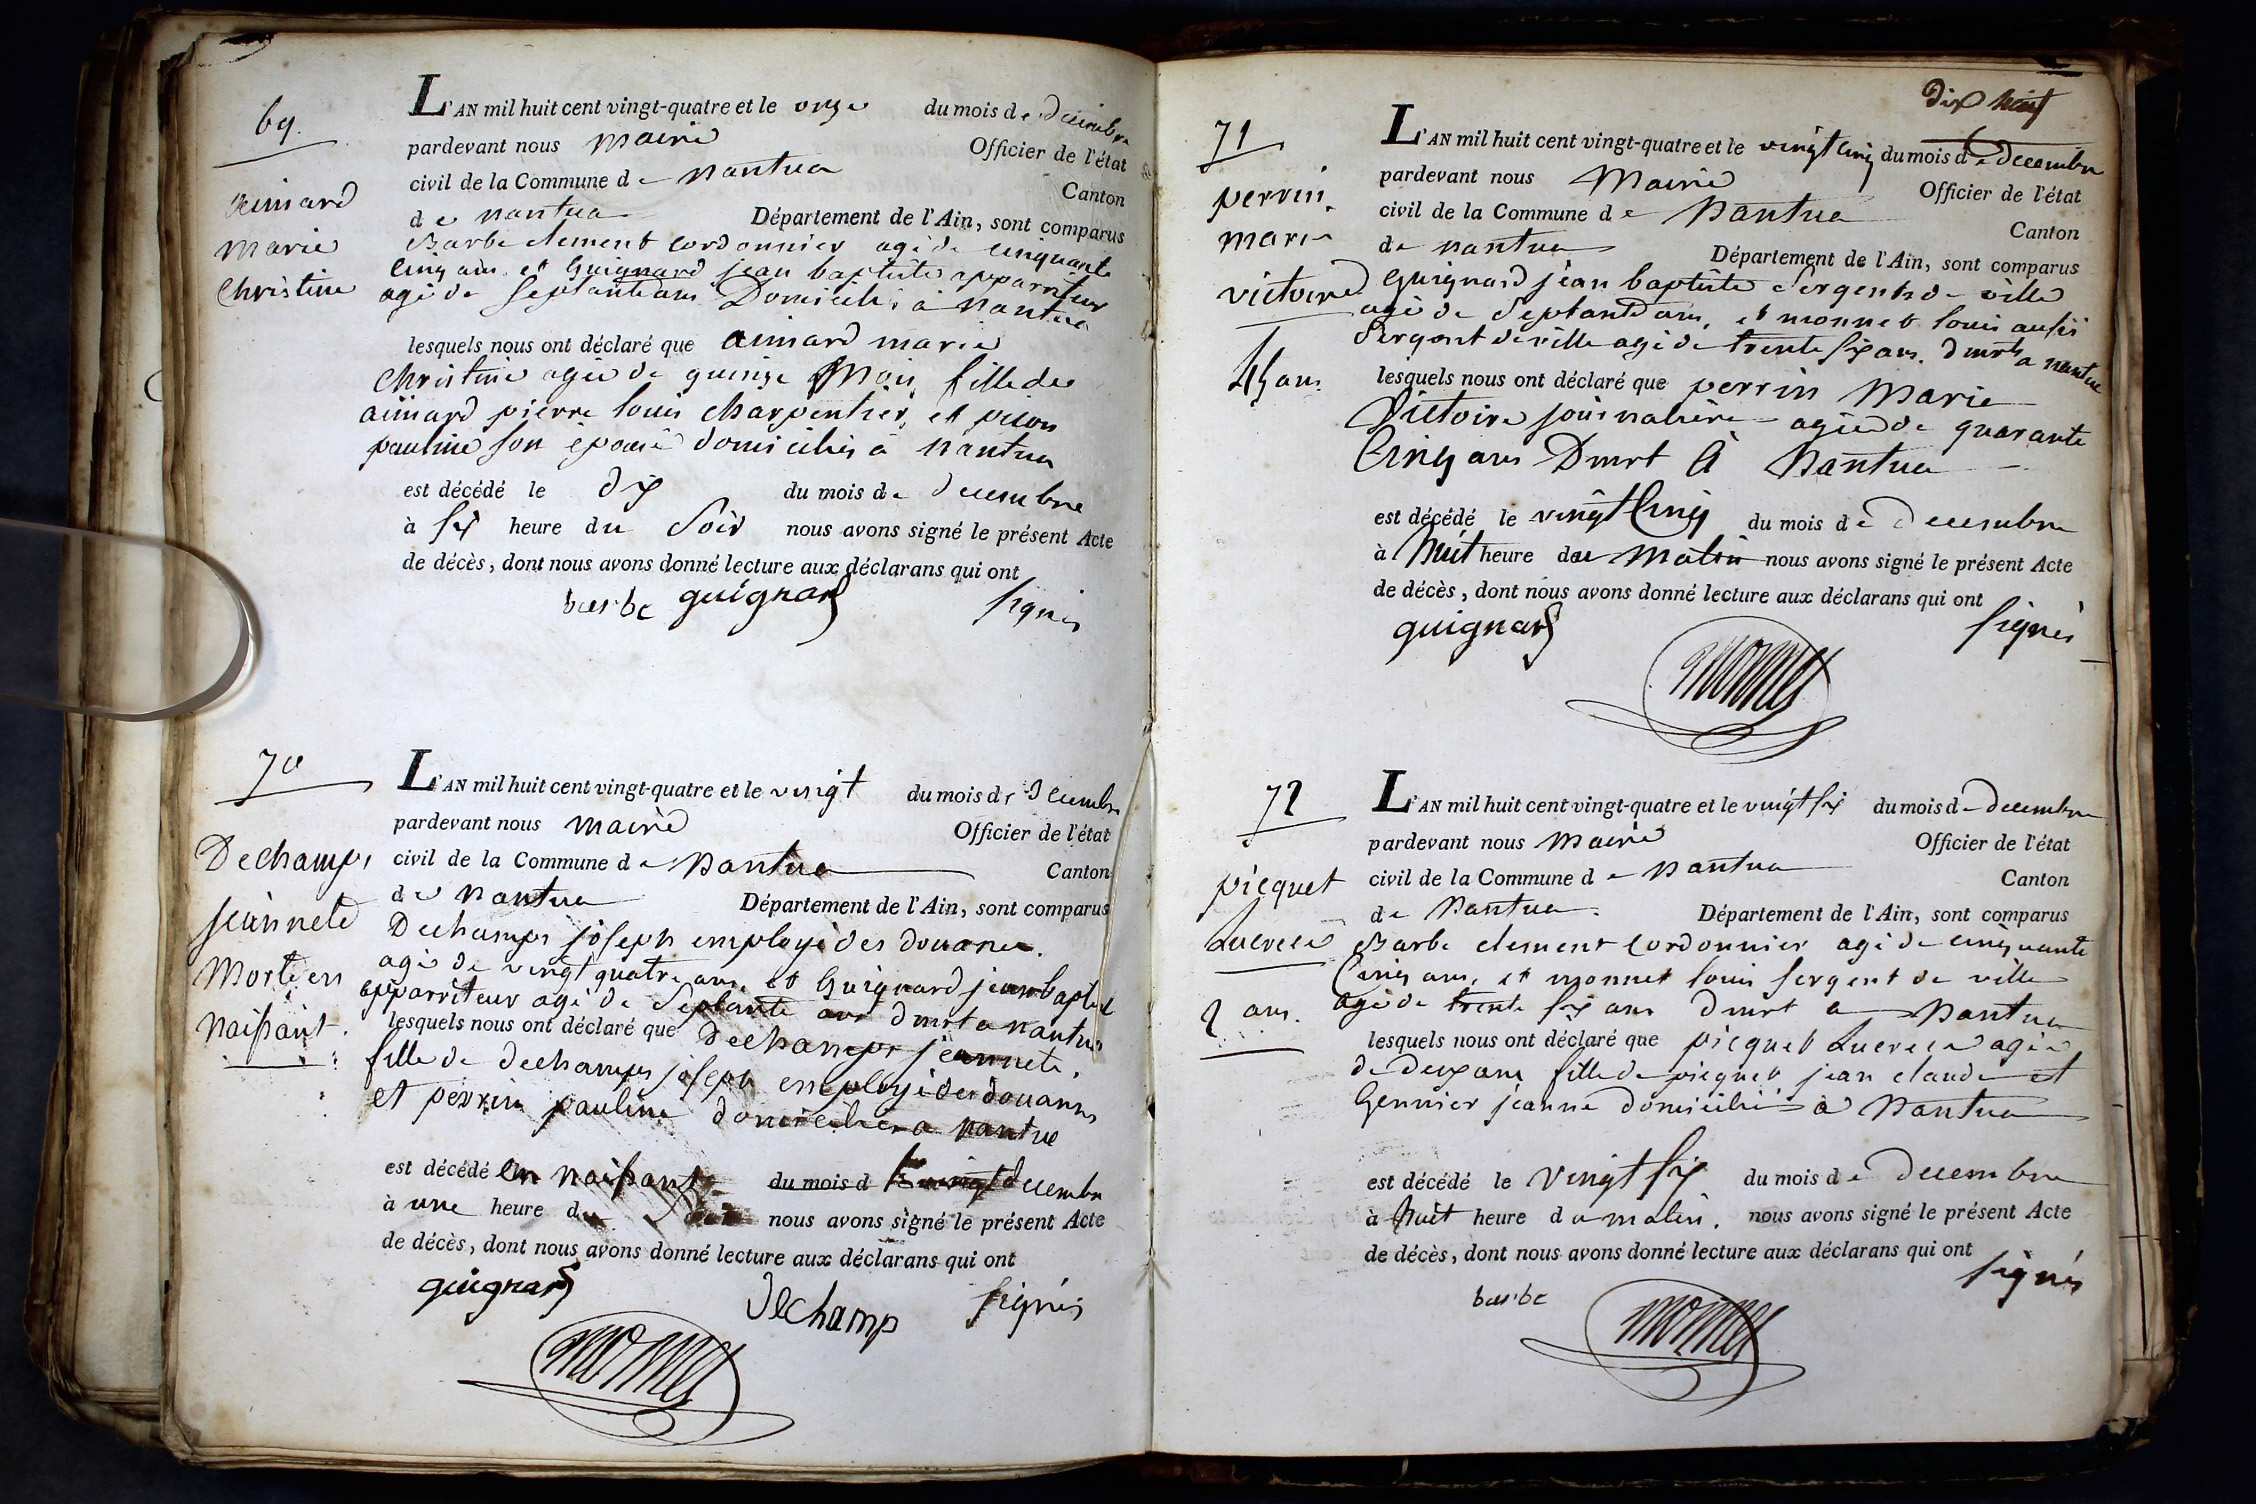 69.
aimard
marie
Christine
L'AN mil huit cent vingt-quatre et le onze du mois de decembre
pardevant nous maire Officier de l'état
civil de la Commune de nantua Canton
de nantua Département de l'Ain, sont comparus
Barbe clement cordonnier agé de cinquante
cinq ans et Guignard jean baptiste apparriteur
agé de septante ans Domiciliés à nantua
lesquels nous ont déclaré que aimard marie
Christine agée de quinze Mois fille de
aimard pierre louis charpentier, et pison
pauline son épouse domiciliés à nantua
est décédé le dix du mois de decembre
à six heure du soir nous avons signé le présent Acte
de décès, dont nous avons donné lecture aux déclarans qui ont
signés
barbe guignard
70
Dechamps
jeannete
Morte en
naissant.
L'AN mil huit cent vingt-quatre et le vingt du mois de decembre
pardevant nous maire Officier de l'état
civil de la Commune de nantua Canton
de nantua Département de l'Ain, sont comparus
Dechamps joseph employé des douanes.
agé de vingt quatre ans, et Guignard jean baptist
apparriteur agé de septante ans dmrt a nantua
lesquels nous ont déclaré que Dechamps jeannete.
fille de dechamps joseph employé des douannes
et perrin pauline domiciliés a nantua
est décédé en naissant du mois d le vingt decembre
à une heure du soir nous avons signé le présent Acte
de décès, dont nous avons donné lecture aux déclarans qui ont
guignard dechamp signés
monnet
dix neuf
71
perrin
marie
victoire
45 ans
L'AN mil huit cent vingt-quatre et le vingt cinq du mois de decembre
pardevant nous Maire Officier de l'état
civil de la Commune de Nantua Canton
de nantua Département de l'Ain, sont comparus
Guignard jean baptiste sergent de ville
agé de septante ans, et monnet louis aussi
sergent de ville agé de trente six ans. dmrts a nantua
lesquels nous ont déclaré que perrin Marie
Victoire journaliere agée de quarante
cinq ans Dmrt à Nantua
est décédé le vingt cinq du mois de decembre
à huit heure du Matin nous avons signé le présent Acte
de décès, dont nous avons donné lecture aux déclarans qui ont
guignard signés
monnet
72
picquet
Lucrece
2 ans.
L'AN mil huit cent vingt-quatre et le vingt six du mois de decembre
pardevant nous maire Officier de l'état
civil de la Commune de Nantua Canton
de Nantua. Département de l'Ain, sont comparus
Barbe clement cordonnier agé de cinquante
cinq ans, et monnet louis sergent de ville
agé de trente six ans dmrt a Nantua
lesquels nous ont déclaré que picquet Lucrece agée
de deux ans fille de picquet jean claude et
Gennier jeanne domiciliés a Nantua
est décédé le vingt six du mois de decembre
à huit heure du matin. nous avons signé le présent Acte
de décès, dont nous avons donné lecture aux déclarans qui ont
signés
barbe monnet